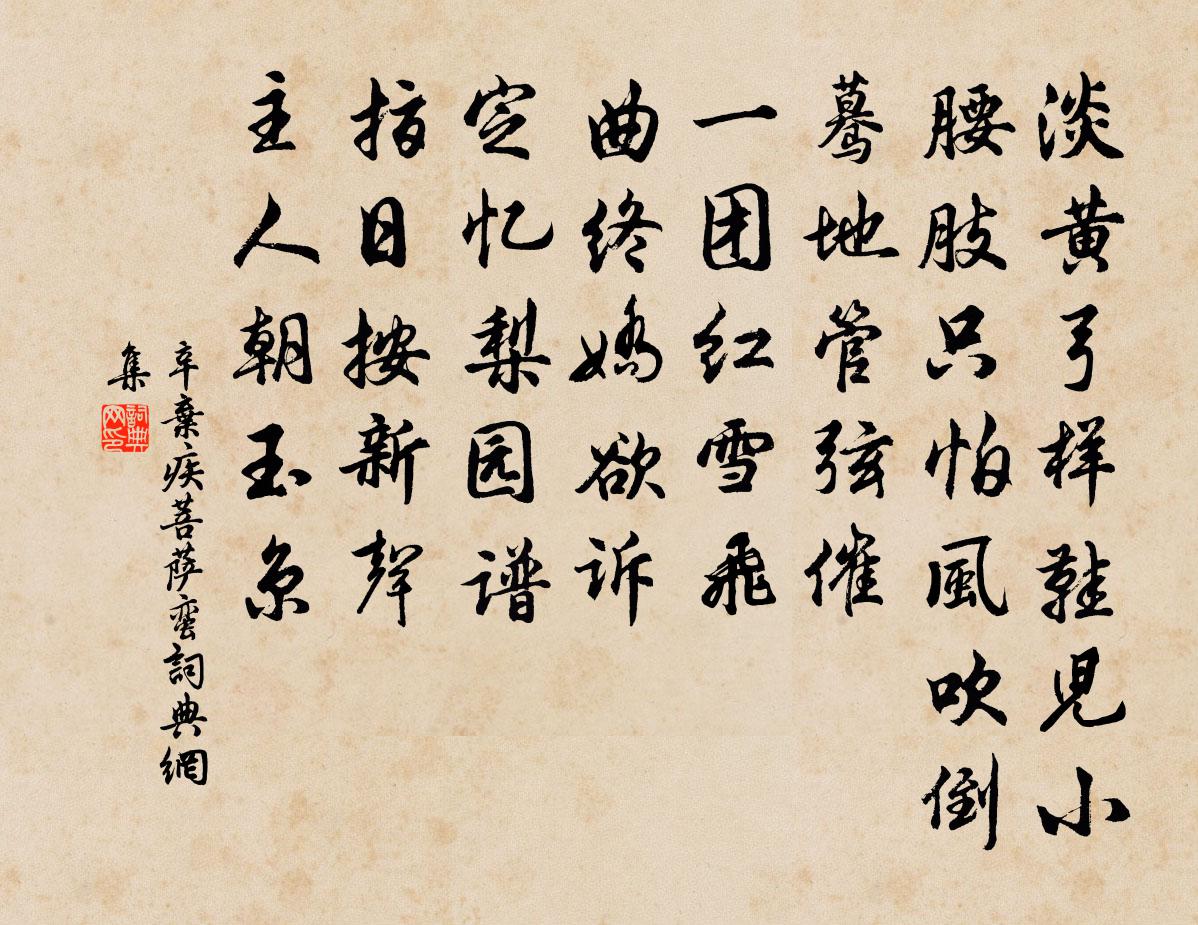 淡黄弓样鞋儿小
腰肢只怕風吹倒
蓦地管弦催
一团红雪飛
曲终娇欲诉
定忆梨园谱
指日按新声
主人朝玉京
辛棄疾菩萨蛮詞典網
集
詞典网印